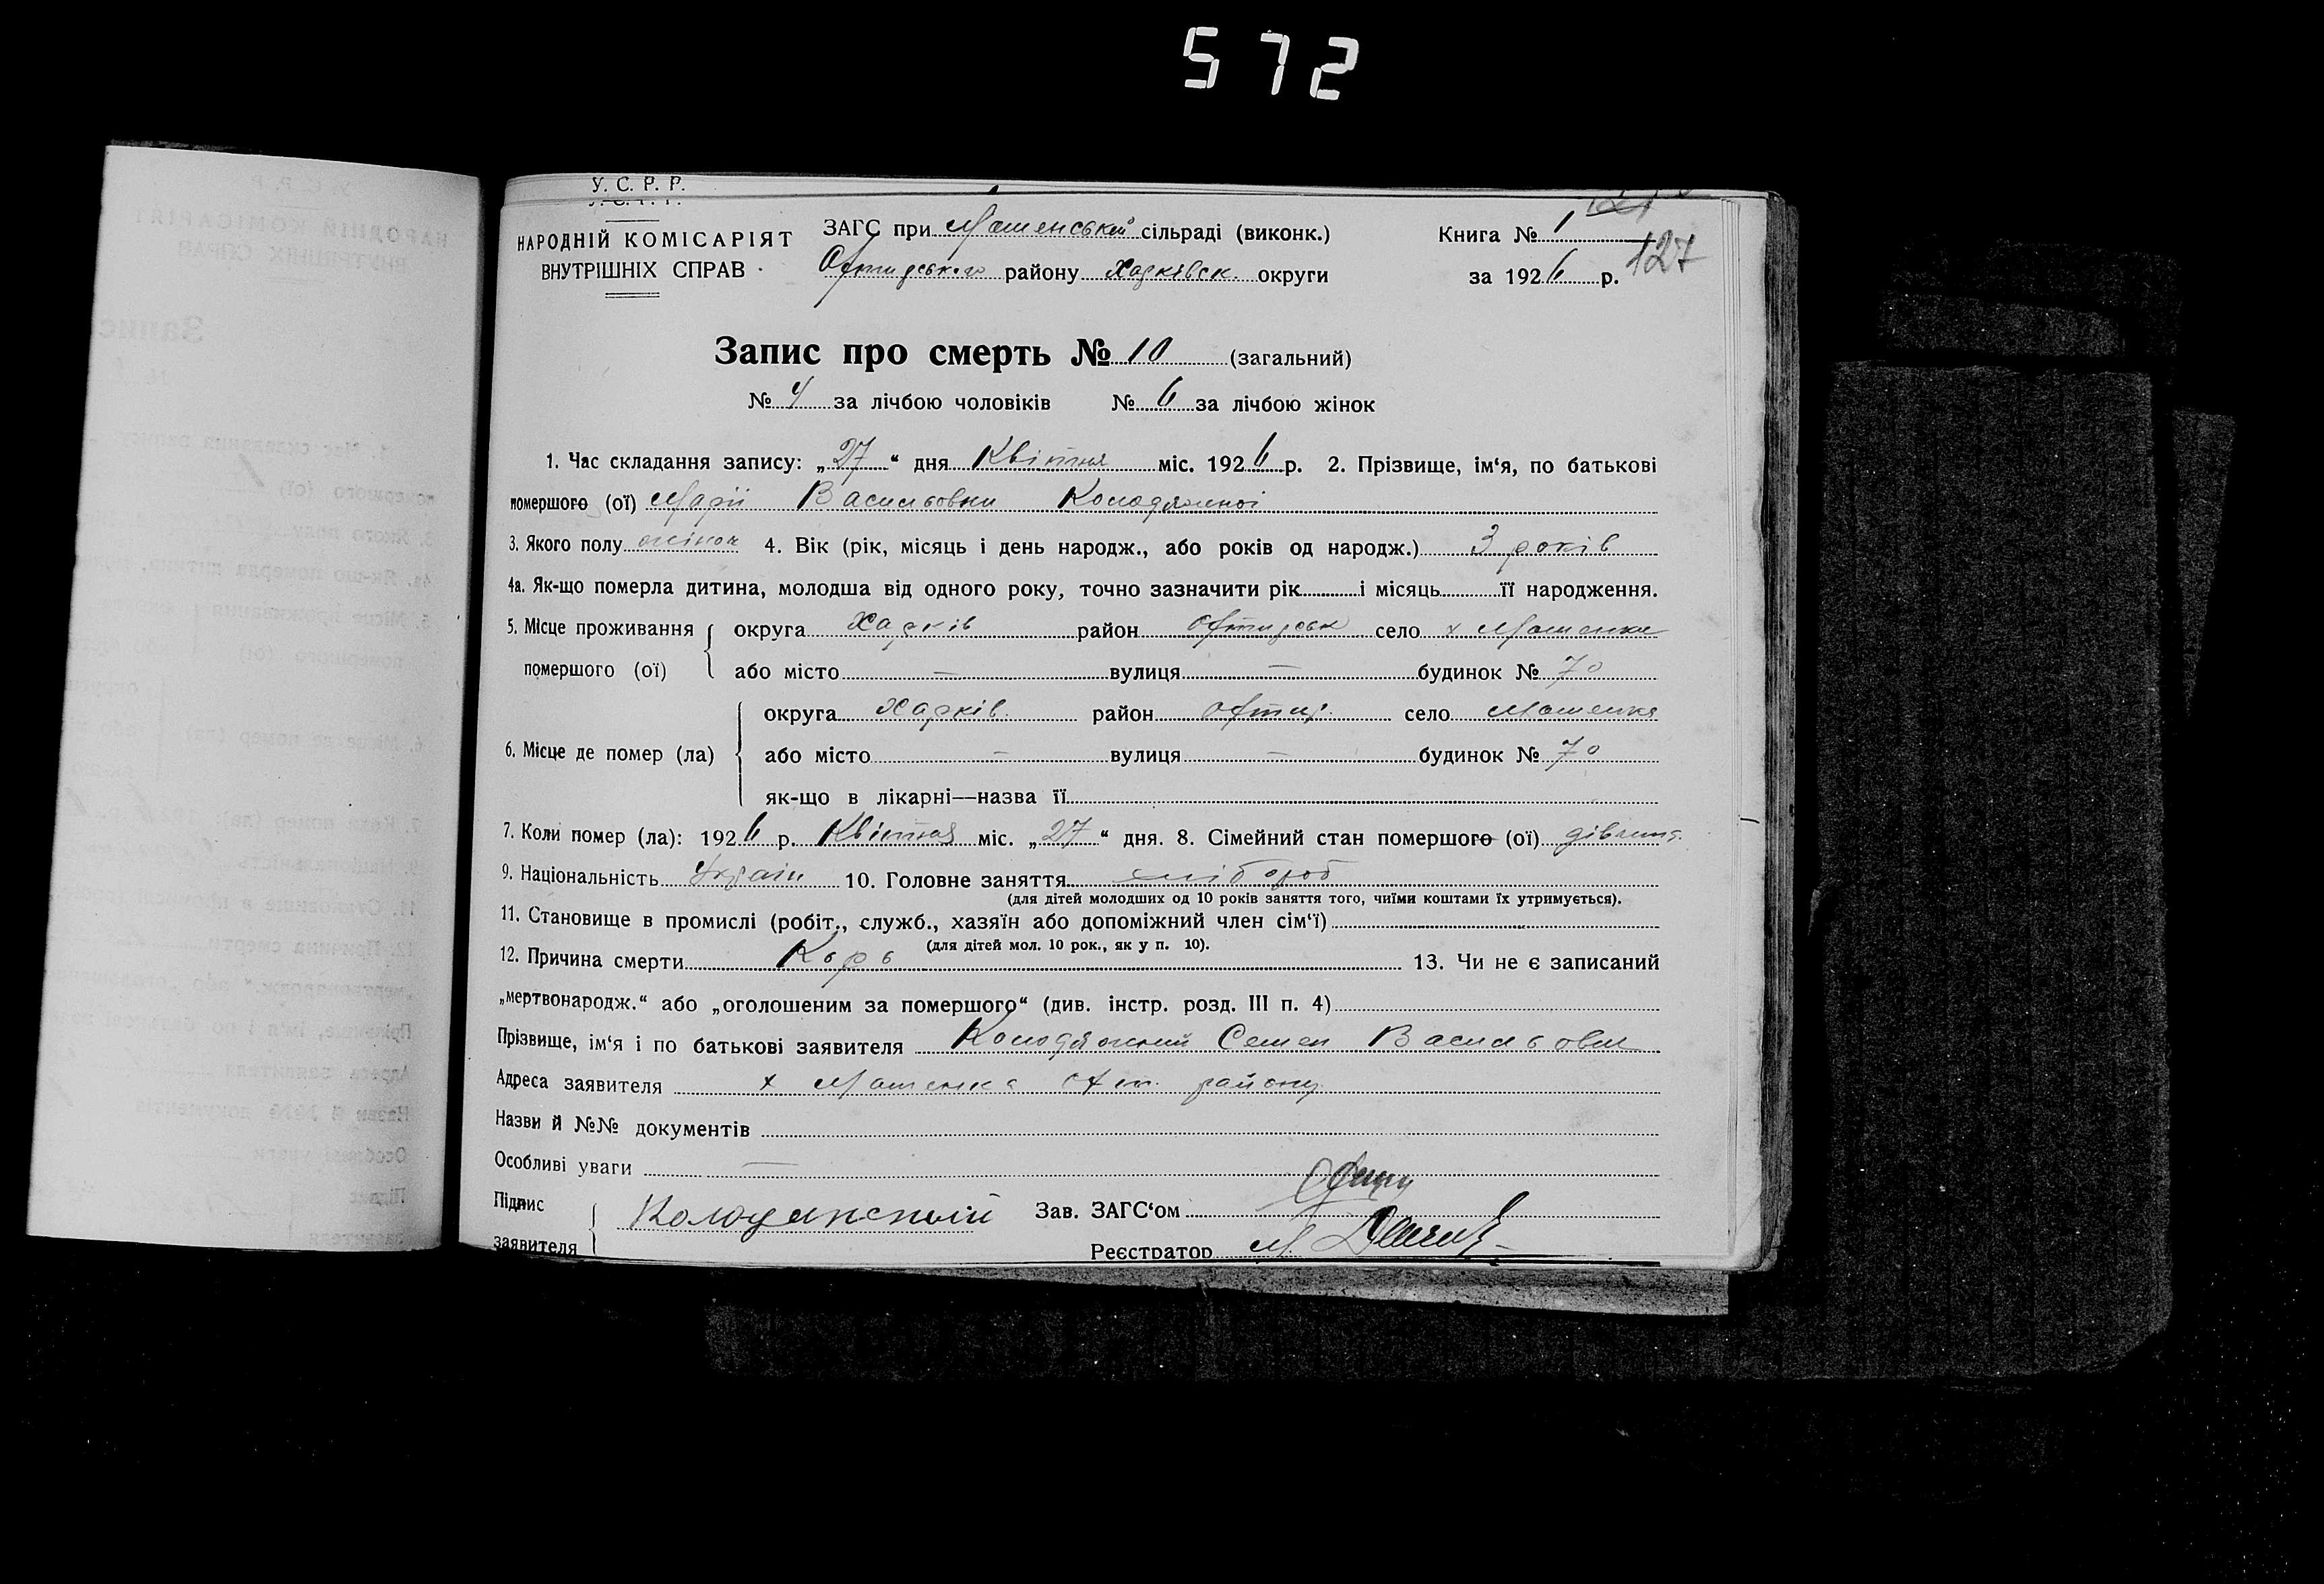 572
У. С. Р. Р.
НАРОДНІЙ КОМІСАРІЯТ
ВНУТРІШНІХ СПРАВ
ЗАГС при Мошенській сільраді (виконк.)
району Харківск. округи
Книга № 1
за 1926 р.
127
Запис про смерть № 10 (загальний)
№ 4 за лічбою чоловіків № 6 за лічбою жінок
1. Час складання запису: „27“ дня Квітня міс. 1926 р. 2. Прізвище, ім‘я, по батькові
помершого (ої) Марії Васильовни Колодяжної
3. Якого полу жіноч 4. Вік (рік, місяць і день народж., або років од народж.) 3 років
4а. Як-що померла дитина, молодша від одного року, точно зазначити рік і місяць її народження.
5. Місце проживання помершого (ої) округа Харків район село х Мошенки
або місто — вулиця — будинок № 70
6. Місце де помер (ла) округа Харків. район село Мошенка
або місто — вулиця — будинок № 70
як-що в лікарні—назва її
7. Коли помер (ла): 1926 р. Квітня міс. „27“ дня. 8. Сімейний стан помершого (ої) дівчина
9. Національність Україн 10. Головне заняття хлібороб
(для дітей молодших од 10 років заняття того, чиїми коштами їх утримується).
11. Становище в промислі (робіт., служб., хазяїн або допоміжний член сім‘ї)
(для дітей мол. 10 рок., як у п. 10).
12. Причина смерти Корь 13. Чи не є записаний
„мертвонародж.“ або „оголошеним за помершого“ (див. інстр. розд. III п. 4)
Прізвище, ім‘я і по батькові заявителя Колодяжний Семен Васильович
Адреса заявителя х Мошенка району
Назви й №№ документів
Особливі уваги —
Підпис заявителя Колодяжний
Зав. ЗАГС‘ом
Реєстратор М.